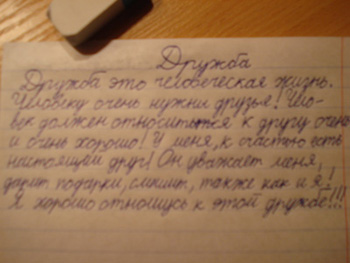 Дружба
Дружба это человеческая жизнь.
Человеку очень нужны друзья! Чело-
век должен относиться к другу очень
и очень хорошо! У меня, к счастью есть
настоящий друг! Он уважает меня,
дарит подарки, смешит, также как и я!
Я хорошо отношусь к этой дружбе!!!